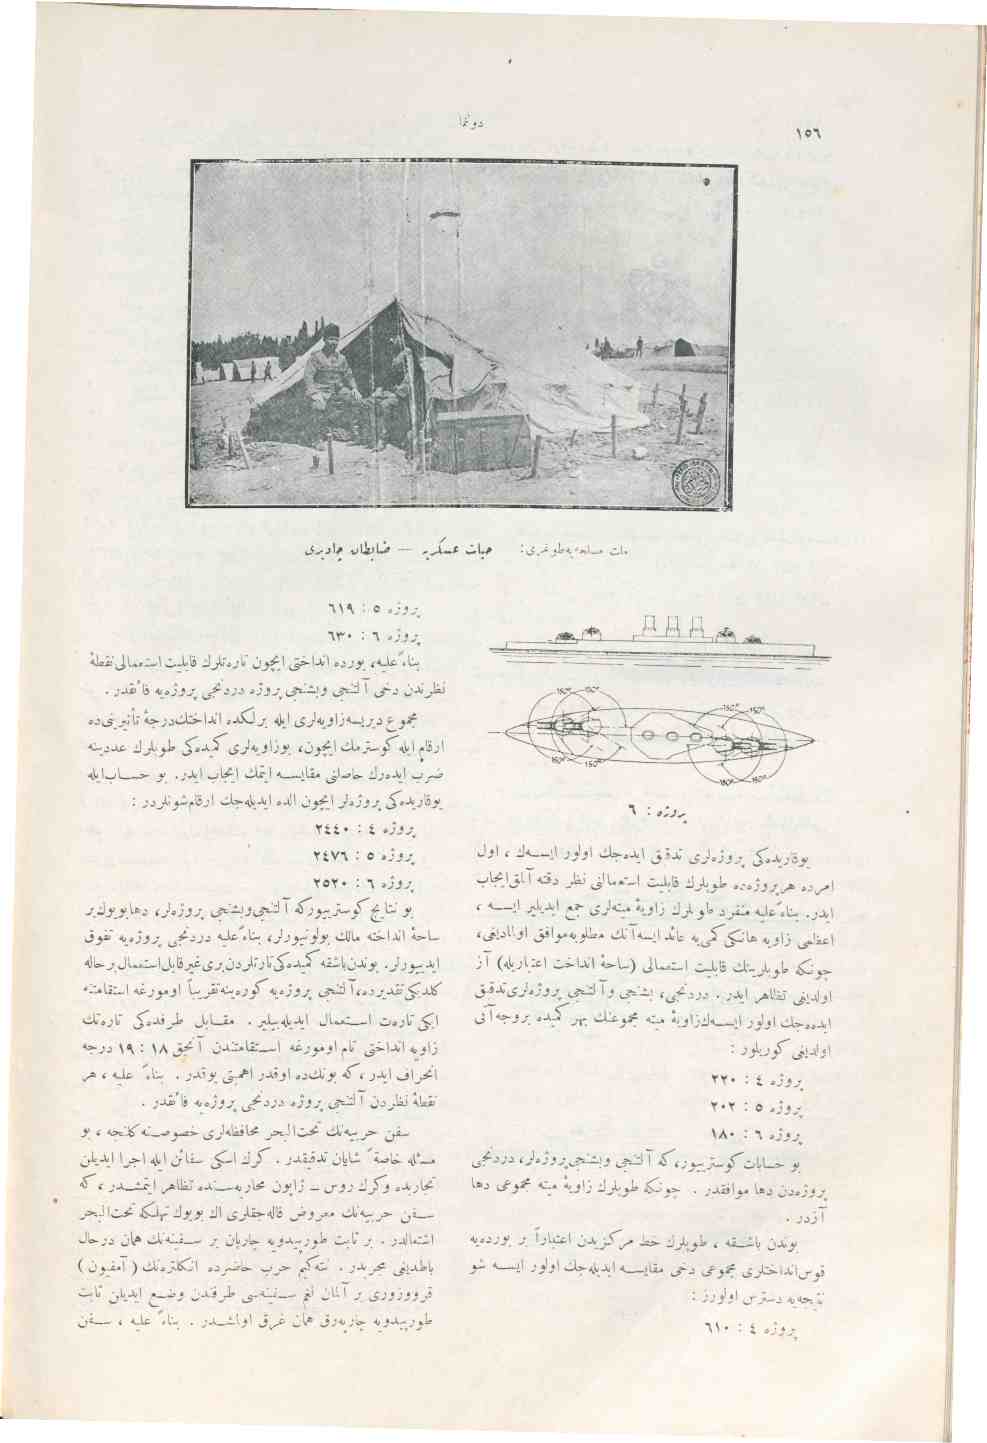 ١٥٦
دونما
ملت مسلحه‌یه طوغری: حیات عسکریه — ضابطان چادیری
150° 150°
150° 150°
150° 150°
150° 150°
پروژه : ٦
یوقاریده‌کی پروژه‌لری تدقیق ایده‌جك اولور ایسه‌ك ، اول
امرده هر پروژه‌ده طوپلرك قابلیت استعمالنی نظر دقته آلمق ایجاب
ایدر. بناءً علیه منفرد طوپلرك زاویهٔ میته‌لری جمع ایدیلیر ایسه ،
اعظمی زاویه هانکی کمی‌یه عائد ایسه آنك مطلوبه موافق اولمادیغی،
چونکه طوپلرینك قابلیت استعمالی (ساحهٔ انداخت اعتباریله) آز
اولدیغی تظاهر ایدر . دردنجی، بشنجی و آلتنجی پروژه‌لری تدقیق
ایده‌جك اولور ایسه‌ك زاویهٔ میته مجموعنك بهر کمیده بروجه آتی
اولدیغی کوریلور :
پروژه ٤ : ٢٢٠
پروژه ٥ : ٢٠٢
پروژه ٦ : ١٨٠
بو حسابات کوستریيور، که آلتنجی وبشنجی پروژه‌لر، دردنجی
پروژه‌دن دها موافقدر . چونکه طوپلرك زاویهٔ میته مجموعی دها
آزدر .
بوندن باشقه ، طوپلرك خط مرکزیدن اعتباراً بر بورده‌یه
قوس انداختلری مجموعی دخی مقایسه ایدیله‌جك اولور ایسه شو
نتیجه‌یه دسترس اولورز :
پروژه ٤ : ٦١٠
پروژه ٥ : ٦١٩
پروژه ٦ : ٦٣٠
بناءً علیه، بورده انداختی ایچون تاره‌تلرك قابلیت استعمالی نقطهٔ
نظرندن دخی آلتنجی وبشنجی پروژه دردنجی پروژه‌یه فائقدر .
مجموع دیریسه زاویه‌لری ایله برلکده انداختك درجهٔ تأثیرینی‌ده
ارقام ایله کوسترمك ایچون، بوزاویه‌لری کمیده‌کی طوپلرك عددینه
ضرب ایده‌رك حاصلنی مقایسه ایتمك ایجاب ایدر. بو حساب ایله
یوقاریده‌کی پروژه‌لر ایچون الده ایدیله‌جك ارقام شونلردر :
پروژه ٤ : ٢٤٤٠
پروژه ٥ : ٢٤٧٦
پروژه ٦ : ٢٥٢٠
بو نتایج کوستریيورکه آلتنجی وبشنجی پروژه‌لر، دها بویوك بر
ساحهٔ انداخته مالك بولونیورلر، بناءً علیه دردنجی پروژه‌یه تفوق
ایدییورلر. بوندن باشقه کمیده‌کی تارتلردن بری غیر قابل استعمال بر حاله
کلدیکی تقدیرده، آلتنجی پروژه‌یه کوره ینه تقریباً اومورغه استقامتنه
ایکی تاره‌ت استعمال ایدیله‌بیلیر. مقابل طرفده‌کی تاره‌تك
زاویه انداختی تام اومورغه استقامتندن آنجق ١٨ : ١٩ درجه
انحراف ایدر ، که بونك‌ده اوقدر اهمیتی یوقدر . بناءً علیه ، هر
نقطهٔ نظردن آلتنجی پروژه دردنجی پروژه‌یه فائقدر .
سفن حربیه‌نك تحت‌البحر محافظه‌لری خصوصنه کلنجه ، بو
مسئله خاصةً شایان تدقیقدر . کرك اسکی سفائن ایله اجرا ایدیلن
تجاربده وکرك روس ـ ژاپون محاربه‌سنده تظاهر ایتمشدر ، که
سفن حربیه‌نك معروض قاله‌جقلری اك بویوك تهلکه تحت‌البحر
اشتعالدر . بر ثابت طورپیدویه چاربان بر سفینه‌نك همان درحال
باطدیغی مجربدر . نته‌کیم حرب حاضرده انکلتره‌نك ( آمفیون )
قرووزوری بر آلمان لغم سفینه‌سی طرفندن وضع ایدیلن ثابت
طورپیدویه چاربه‌رق همان غرق اولمشدر . بناءً علیه ، سفن